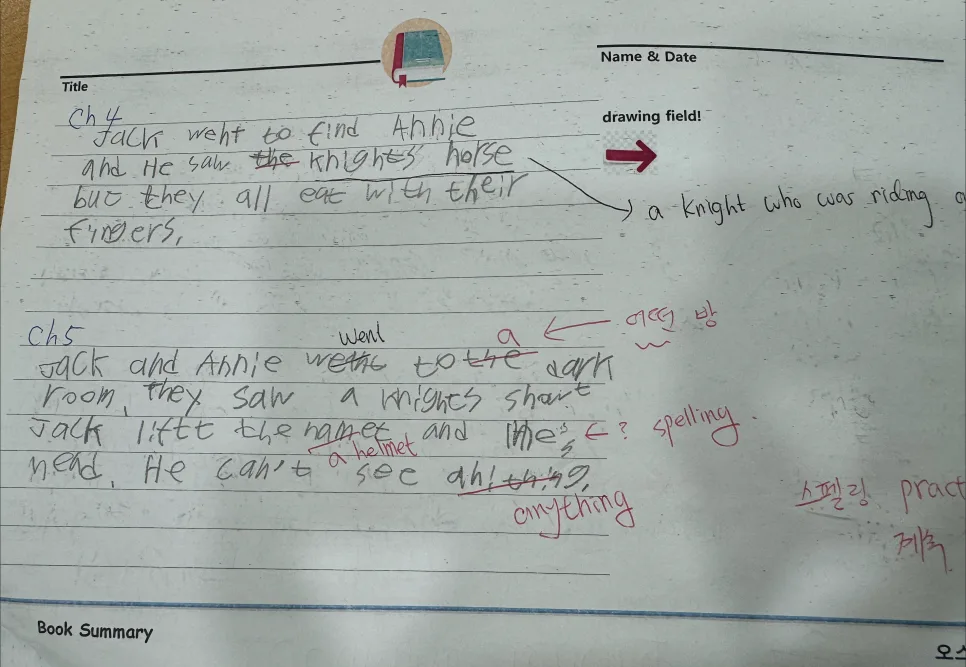 Title
Name & Date
drawing field!
Ch 4
Jack weht to find Annie
and He saw the Knights horse
but they all eat with their
fingers,
a knight who was riding a
Ch 5
went
a ← 어떤 방
Jack and Annie to the dark
room, they saw a Knights
Jack liftt the and ← ? spelling.
a helmet
He can't see
anything
스펠링 pract
제목
Book Summary
오스